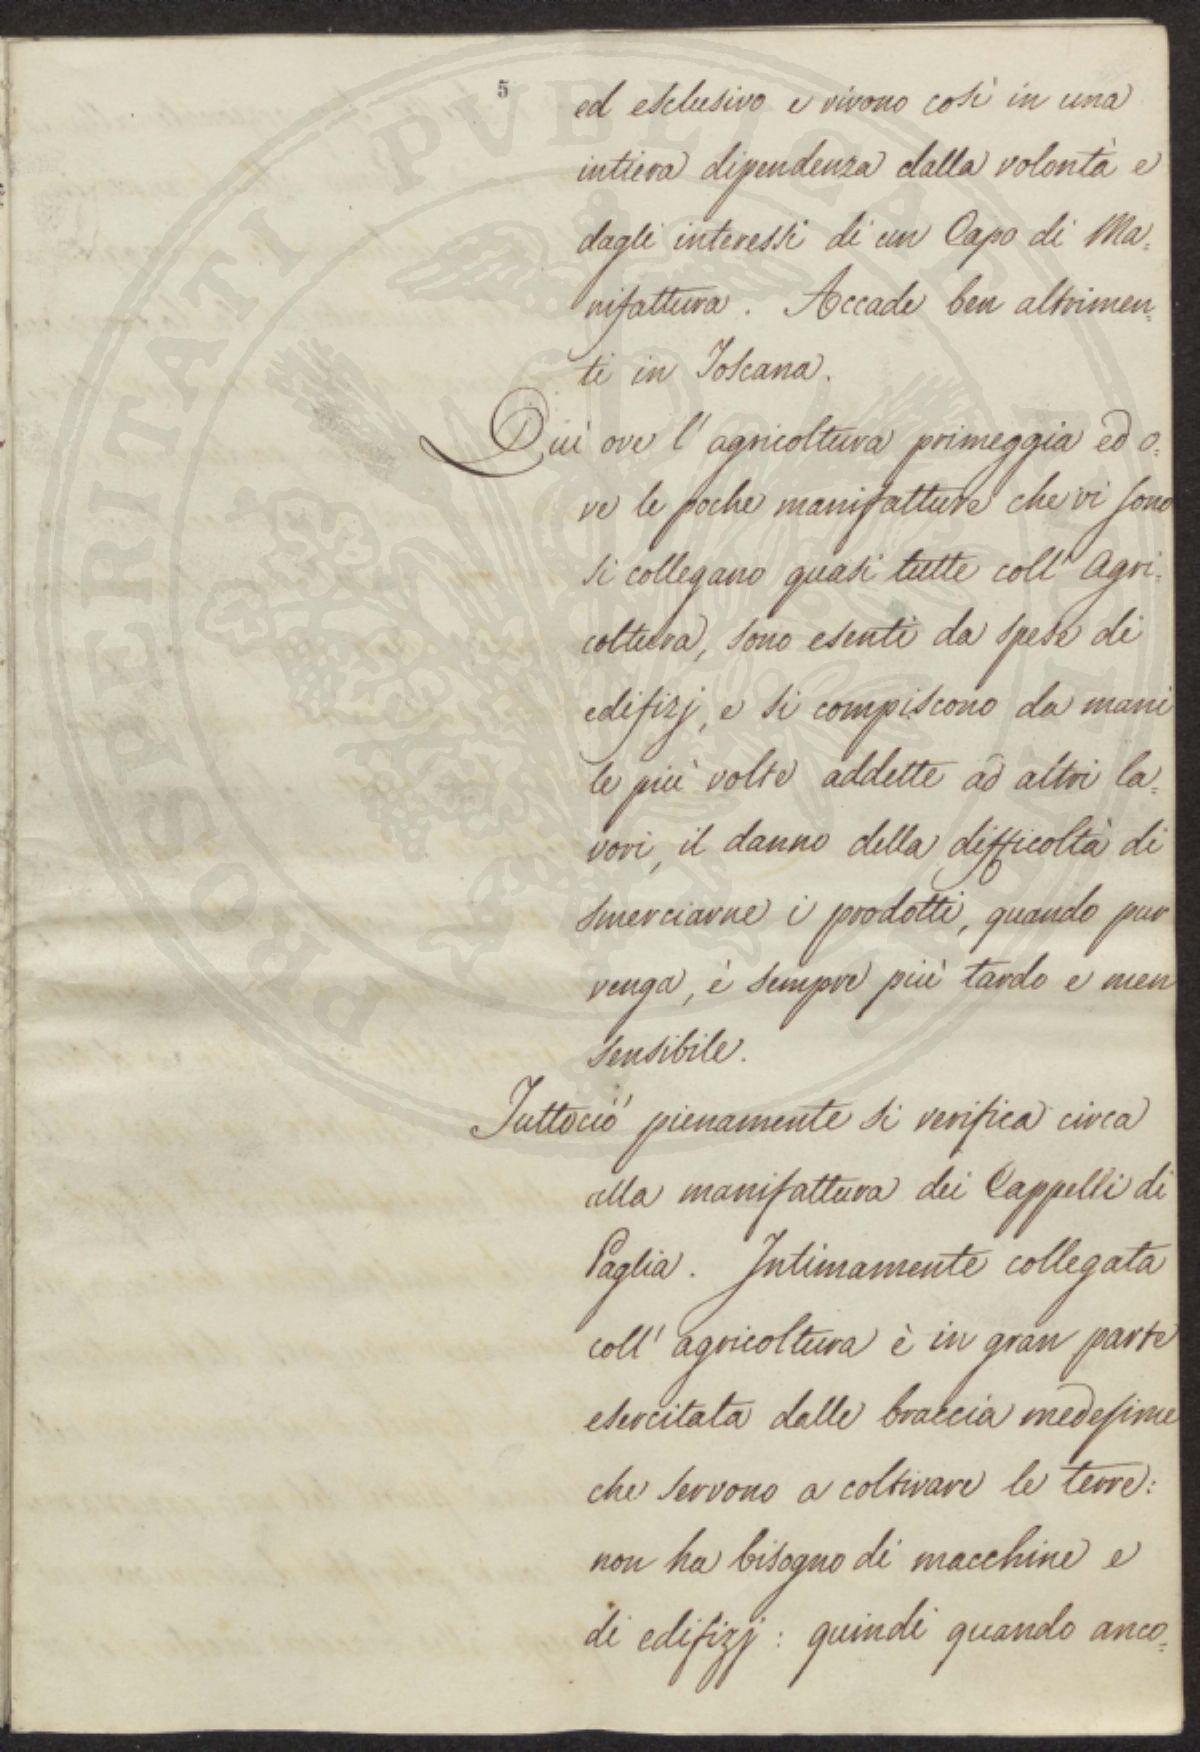 5
ed esclusivo e vivono così in una
intiera dipendenza dalla volontà e
dagli interessi di un Capo di Ma=
nifattura. Accade ben altrimen=
ti in Toscana.
Quì ove l'agricoltura primeggia ed o=
ve le poche manifatture che vi sono
si collegano quasi tutte coll'Agri=
coltura, sono esenti da spese di
edifizj, e si compiscono da mani
le più volte addette ad altri la=
vori, il danno della difficoltà di
smerciarne i prodotti, quando pur
venga, è sempre più tardo e men
sensibile.
Tuttociò pienamente si verifica circa
alla manifattura dei Cappelli di
Paglia. Intimamente collegata
coll'agricoltura è in gran parte
esercitata dalle braccia medesime
che servono a coltivare le terre:
non ha bisogno di macchine e
di edifizj: quindi quando anco=
PROSPERITATI PVBLICAE AVGENDAE